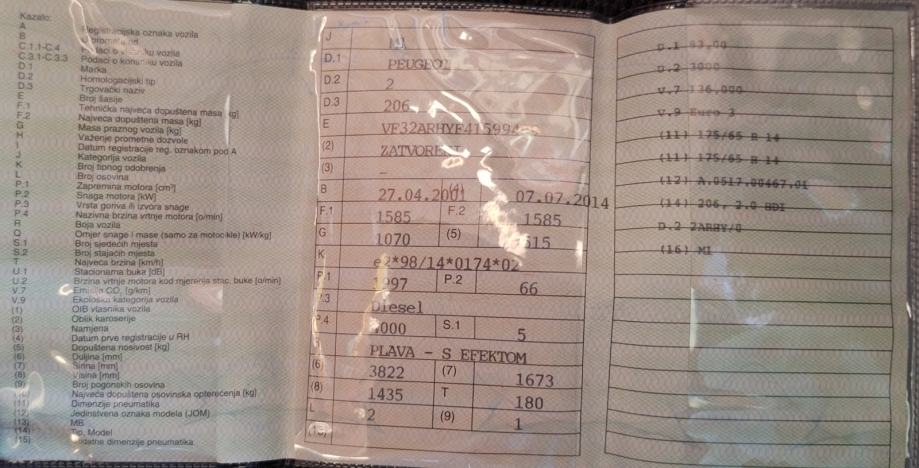 Kazalo:
A Registracijska oznaka vozila
B
C.1.1-C.4 Podaci o vlasniku vozila
C.3.1-C.3.3 Podaci o korisniku vozila
D.1 Marka
D.2 Homologacijski tip
D.3 Trgovački naziv
E Broj šasije
F.1 Tehnička najveća dopuštena masa [kg]
F.2 Najveća dopuštena masa [kg]
G Masa praznog vozila [kg]
H Važenje prometne dozvole
I Datum registracije reg. oznakom pod A
J Kategorija vozila
K Broj tipnog odobrenja
L Broj osovina
P.1 Zapremina motora [cm³]
P.2 Snaga motora [kW]
P.3 Vrsta goriva ili izvora snage
P.4 Nazivna brzina vrtnje motora [o/min]
R Boja vozila
Q Omjer snage i mase (samo za motocikle) [kW/kg]
S.1 Broj sjedećih mjesta
S.2 Broj stajaćih mjesta
T Najveća brzina [km/h]
U.1 Stacionarna buka [dB]
U.2 Brzina vrtnje motora kod mjerenja stac. buke [o/min]
V.7 Emisija CO₂ [g/km]
V.9 Ekološka kategorija vozila
(1) OIB vlasnika vozila
(2) Oblik karoserije
(3) Namjena
(4) Datum prve registracije u RH
(5) Dopuštena nosivost [kg]
(6) Duljina [mm]
(7) Širina [mm]
(8) Visina [mm]
(9) Broj pogonskih osovina
Najveća dopuštena osovinska opterećenja [kg]
(11) Dimenzije pneumatika
(12) Jedinstvena oznaka modela (JOM)
(13) MB
(14) Tip, Model
(15) Dodatne dimenzije pneumatika
J M1
D.1 PEUGEOT
D.2 2
D.3 206
E VF32ARHYF415994
(2) ZATVORENI
(3) -
B 27.04.2001 (4) 07.07.2014
F.1 1585 F.2 1585
G 1070 (5) 515
K e2*98/14*0174*02
P.1 1997 P.2 66
P.3 Diesel
P.4 4000 S.1 5
PLAVA - S EFEKTOM
(6) 3822 (7) 1673
(8) 1435 T 180
L 2 (9) 1
U.1 83,00
U.2 3000
V.7 136,000
V.9 Euro 3
(11) 175/65 R 14
(11) 175/65 R 14
(12) A.0517.00467.01
(14) 206, 2.0 HDI
D.2 2ARHY/0
(16) MI